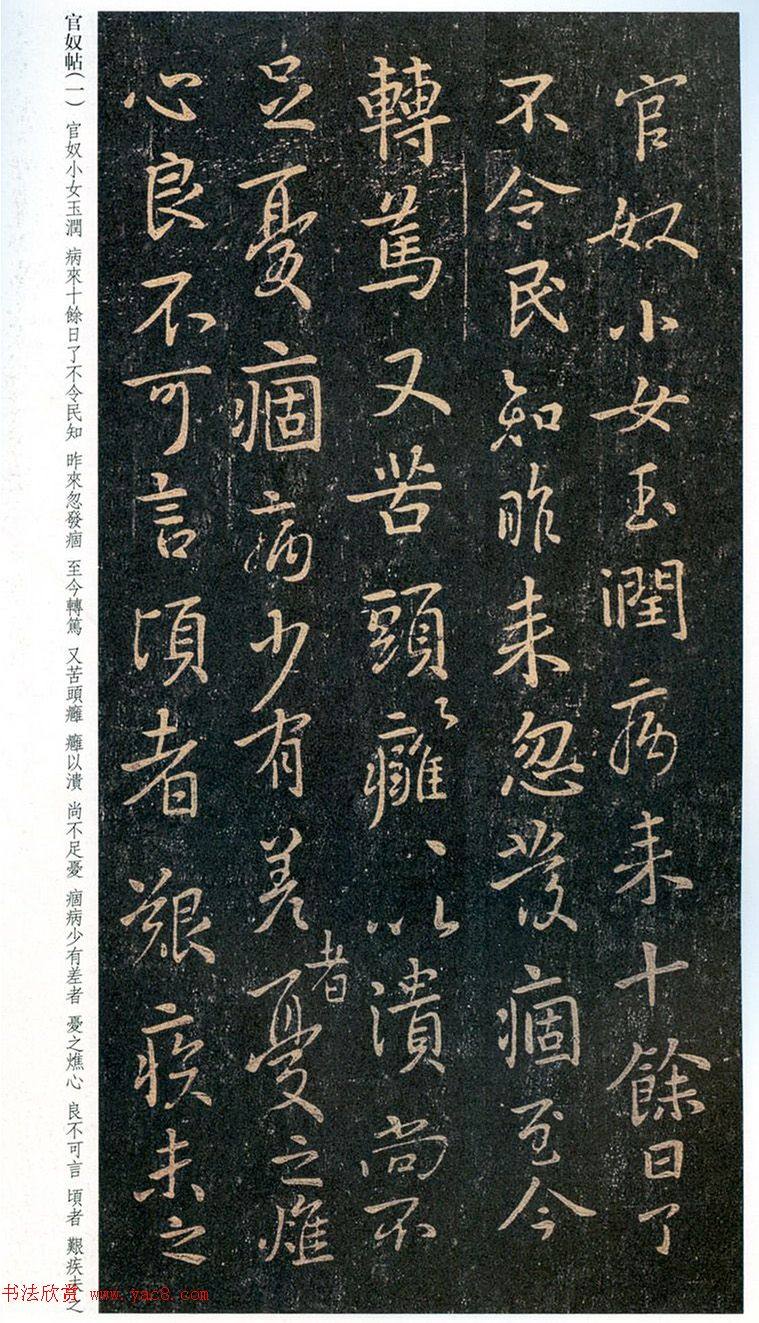 官奴小女玉潤病来十餘日了
不令民知昨来忽發痼至今
轉篤又苦頭癰、以潰尚不
足憂痼病少有差者憂之燋
心良不可言頃者艱疾未之
官奴帖(一) 官奴小女玉潤 病來十餘日了不令民知 昨來忽發痼 至今轉篤 又苦頭癰 癰以潰 尚不足憂 痼病少有差者 憂之燋心 良不可言 頃者 艱疾未之
书法欣赏 www.yac8.com